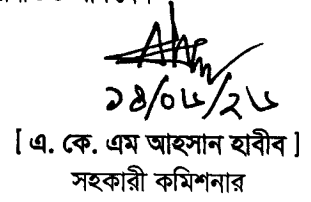 ১৪/০৬/২৬
[ এ. কে. এম আহসান হাবীব ]
সহকারী কমিশনার